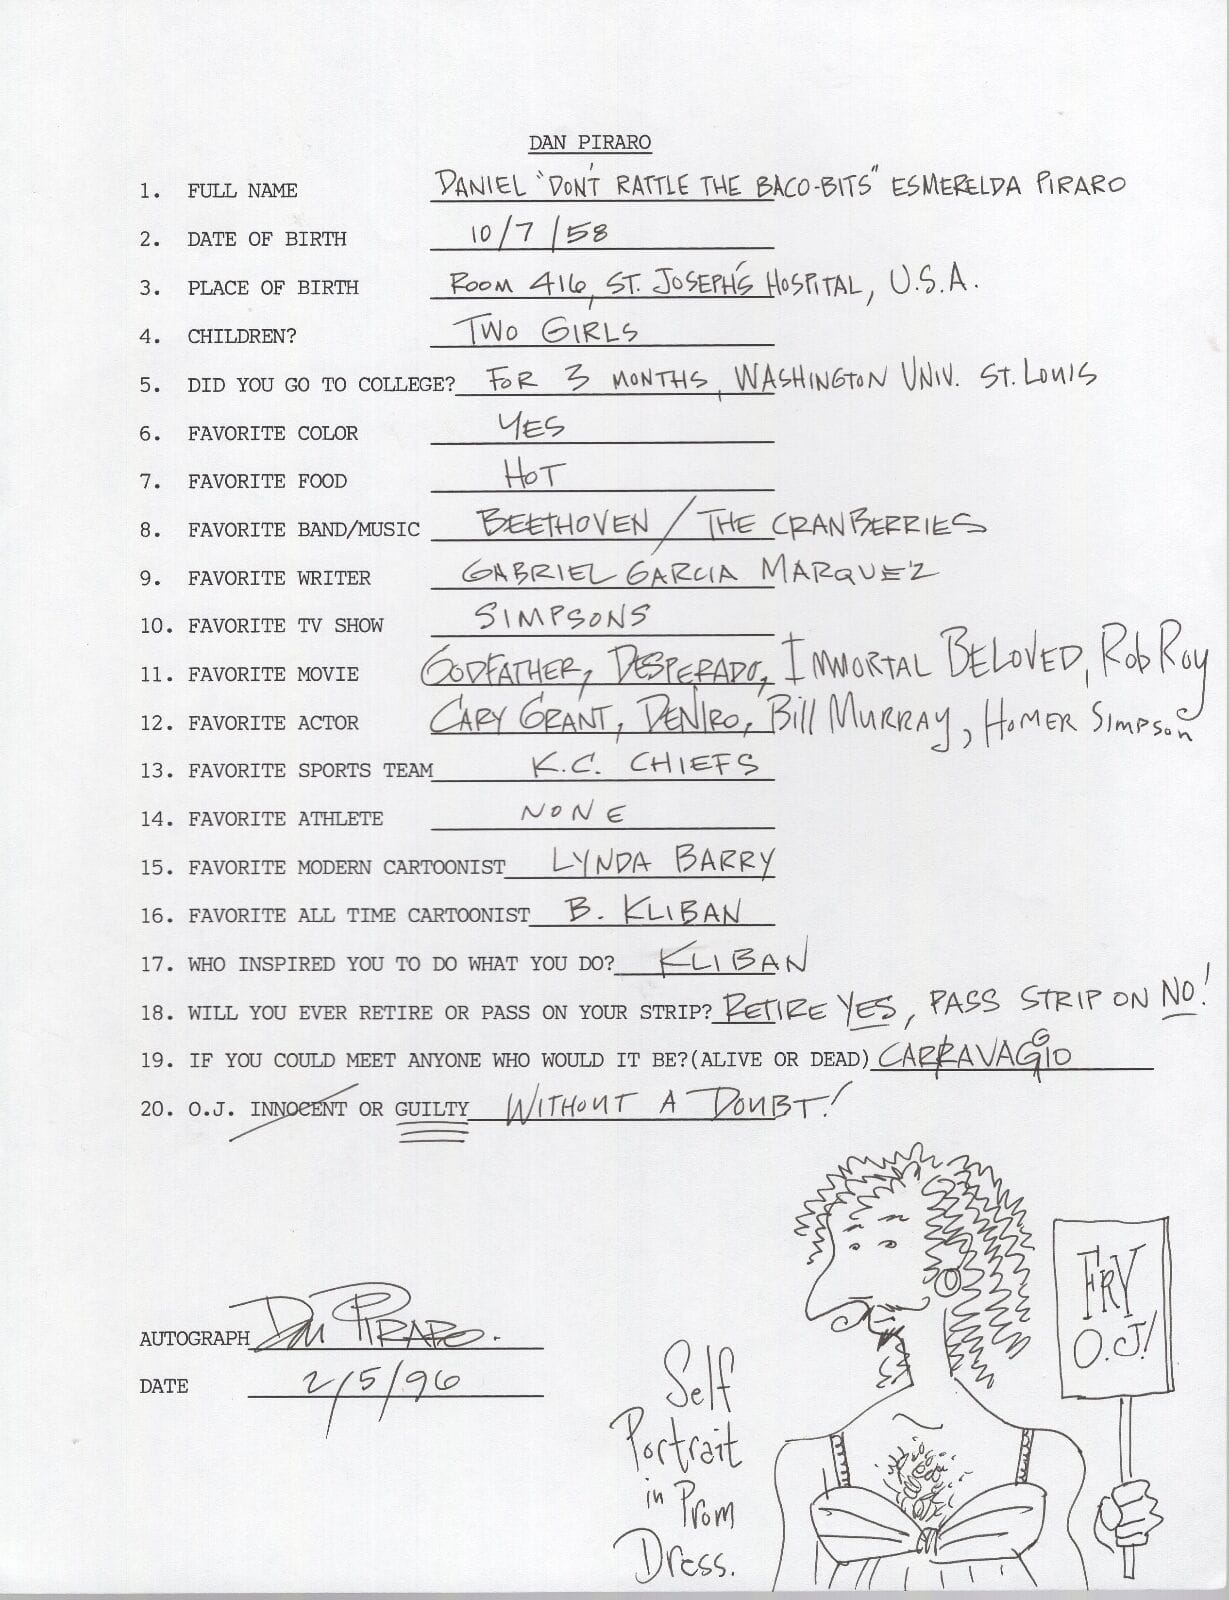 DAN PIRARO
1. FULL NAME DANIEL "DON'T RATTLE THE BACO-BITS" ESMERELDA PIRARO
2. DATE OF BIRTH 10/7/58
3. PLACE OF BIRTH ROOM 416, ST. JOSEPH'S HOSPITAL, U.S.A.
4. CHILDREN? TWO GIRLS
5. DID YOU GO TO COLLEGE? FOR 3 MONTHS, WASHINGTON UNIV. ST. LOUIS
6. FAVORITE COLOR YES
7. FAVORITE FOOD HOT
8. FAVORITE BAND/MUSIC BEETHOVEN / THE CRANBERRIES
9. FAVORITE WRITER GABRIEL GARCIA MARQUE'Z
10. FAVORITE TV SHOW SIMPSONS
11. FAVORITE MOVIE GODFATHER, DESPERADO, IMMORTAL BELOVED, Rob Roy
12. FAVORITE ACTOR CARY GRANT, DENIRO, Bill MURRAY, HOMER SIMPSON
13. FAVORITE SPORTS TEAM K.C. CHIEFS
14. FAVORITE ATHLETE NONE
15. FAVORITE MODERN CARTOONIST LYNDA BARRY
16. FAVORITE ALL TIME CARTOONIST B. KLIBAN
17. WHO INSPIRED YOU TO DO WHAT YOU DO? KLIBAN
18. WILL YOU EVER RETIRE OR PASS ON YOUR STRIP? RETIRE YES, PASS STRIP ON NO!
19. IF YOU COULD MEET ANYONE WHO WOULD IT BE?(ALIVE OR DEAD) CARRAVAGGIO
20. O.J. INNOCENT OR GUILTY WITHOUT A DOUBT!
FRY
O.J!
AUTOGRAPH DAN PIRARO.
DATE 2/5/96
Self
Portrait
in Prom
Dress.